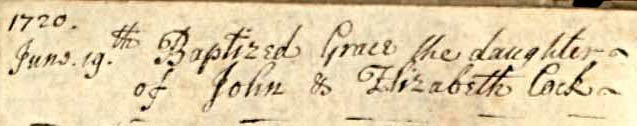 1720.
June. 19.th Baptized Grace the daughter
of John & Elizabeth Cock